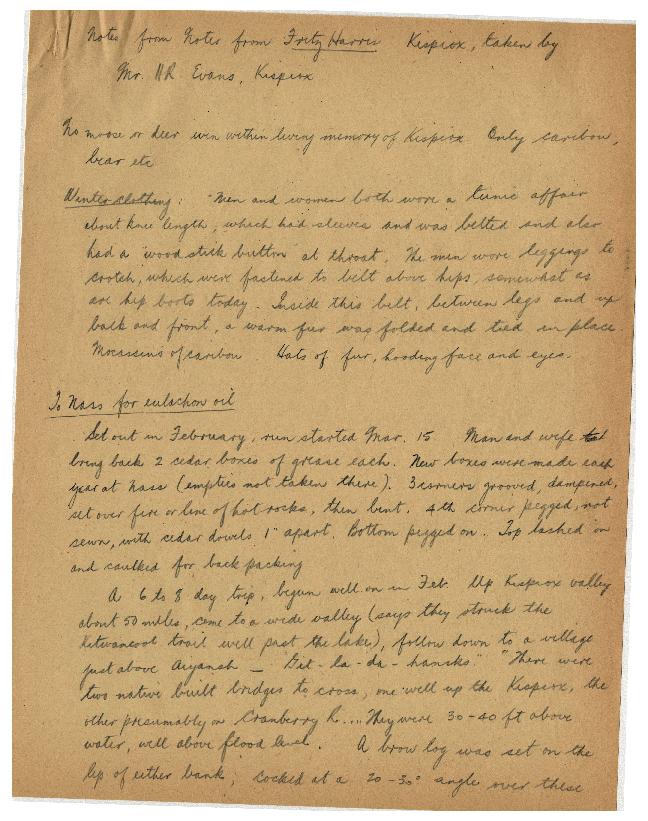 Notes from Notes from Fritz Harris Kispiox, taken by
Mr. HR Evans, Kispiox
No moose or deer within living memory of Kispiox Only caribou,
bear etc
Winter clothing: "Men and women both wore a tunic affair
about knee length, which had sleeves and was belted and also
had a "wood stick button" at throat. The men wore leggings to
crotch, which were fastened to belt above hips, somewhat as
are hip boots today. Inside this belt, between legs and up
back and front, a warm fur was folded and tied in place.
Mocassins of caribou. Hats of fur, hooding face and eyes.
To Nass for eulachon oil
Set out in February, run started Mar. 15 Man and wife
bring back 2 cedar boxes of grease each. New boxes were made each
year at Nass (empties not taken there). 3 corners grooved, dampened,
set over fire or line of hot rocks, then bent. 4th corner pegged, not
sewn, with cedar dowels 1" apart. Bottom pegged on. Top lashed on
and caulked for back packing
A 6 to 8 day trip, begun well on in Feb. Up Kispiox valley
about 50 miles, come to a wide valley (says they struck the
Kitwancool trail well past the lake), follow down to a village
just above Aiyansh — Git-la-da-hansks." "There were
two native built bridges to cross, one well up the Kispiox, the
other presumably on Cranberry R.... They were 30-40 ft above
water, well above flood level. A brow log was set on the
lip of either bank, cocked at a 20-30° angle over these